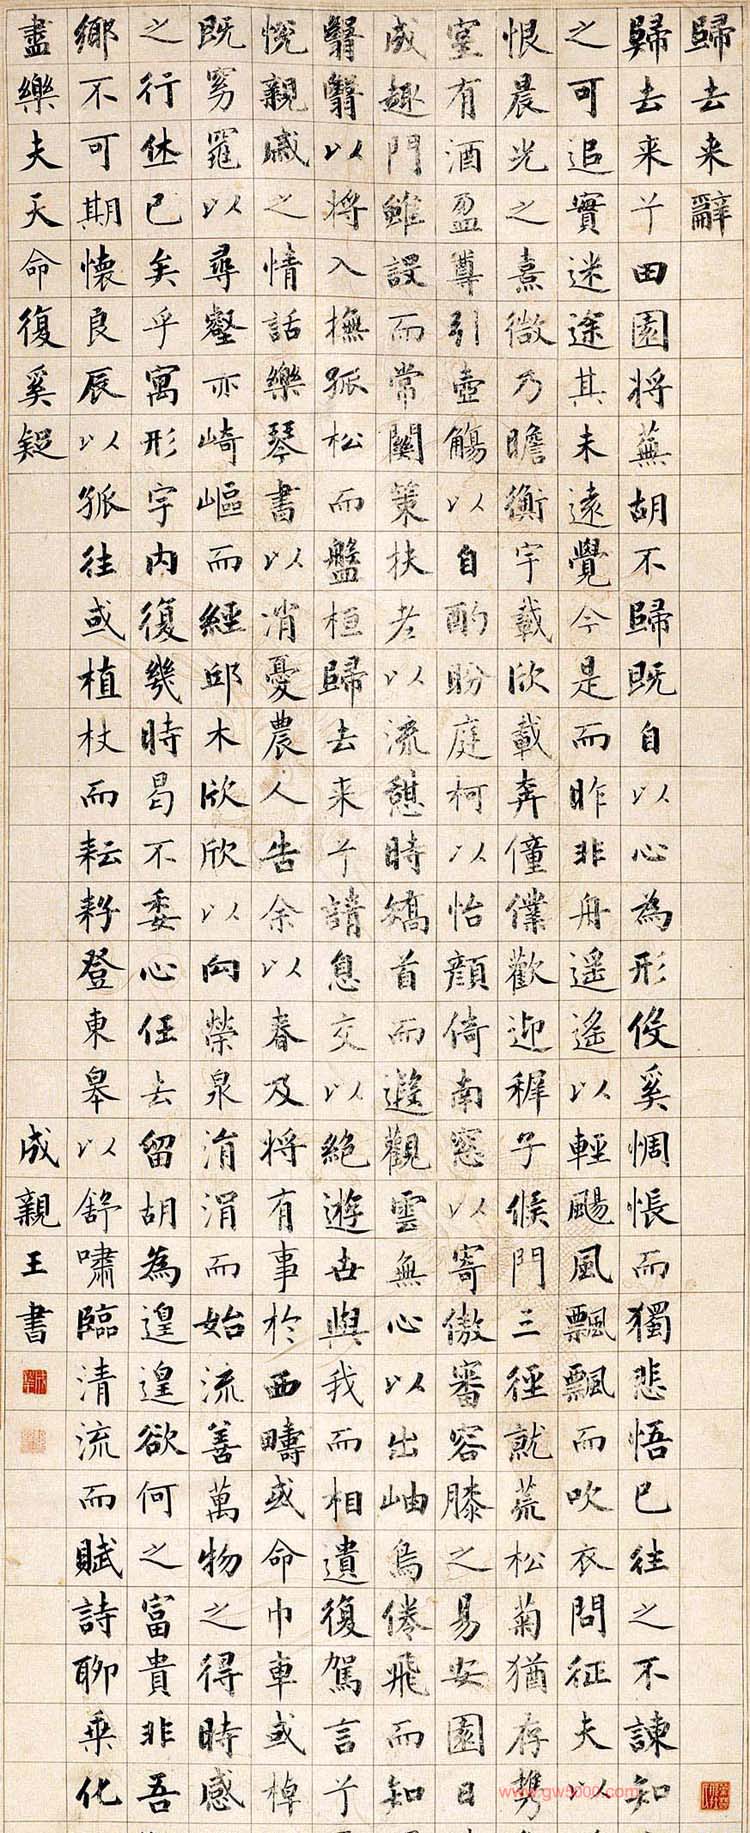 歸去来辭
歸去来兮田園将蕪胡不歸既自以心為形役奚惆悵而獨悲悟已往之不諫知
之可追實迷途其未遠覺今是而昨非舟遥遥以輕颺風飄飄而吹衣問征夫以
恨晨光之熹微乃瞻衡宇載欣載奔僮僕歡迎稺子候門三徑就荒松菊猶存携
室有酒盈尊引壺觴以自酌眄庭柯以怡顔倚南窓以寄傲審容膝之易安園日
成趣門雖設而常關策扶老以流憩時矯首而遐觀雲無心以出岫鳥倦飛而知
翳翳以将入撫孤松而盤桓歸去来兮請息交以絶遊世與我而相遺復駕言兮
悦親戚之情話樂琴書以消憂農人告余以春及将有事於西疇或命巾車或棹
既窈窕以尋壑亦崎嶇而經邱木欣欣以向榮泉涓涓而始流善萬物之得時感
之行休已矣乎寓形宇内復幾時曷不委心任去留胡為遑遑欲何之富貴非吾
鄉不可期懷良辰以孤往或植杖而耘耔登東皋以舒嘯臨清流而賦詩聊乘化
盡樂夫天命復奚疑
成親王書
www.gw5000.com